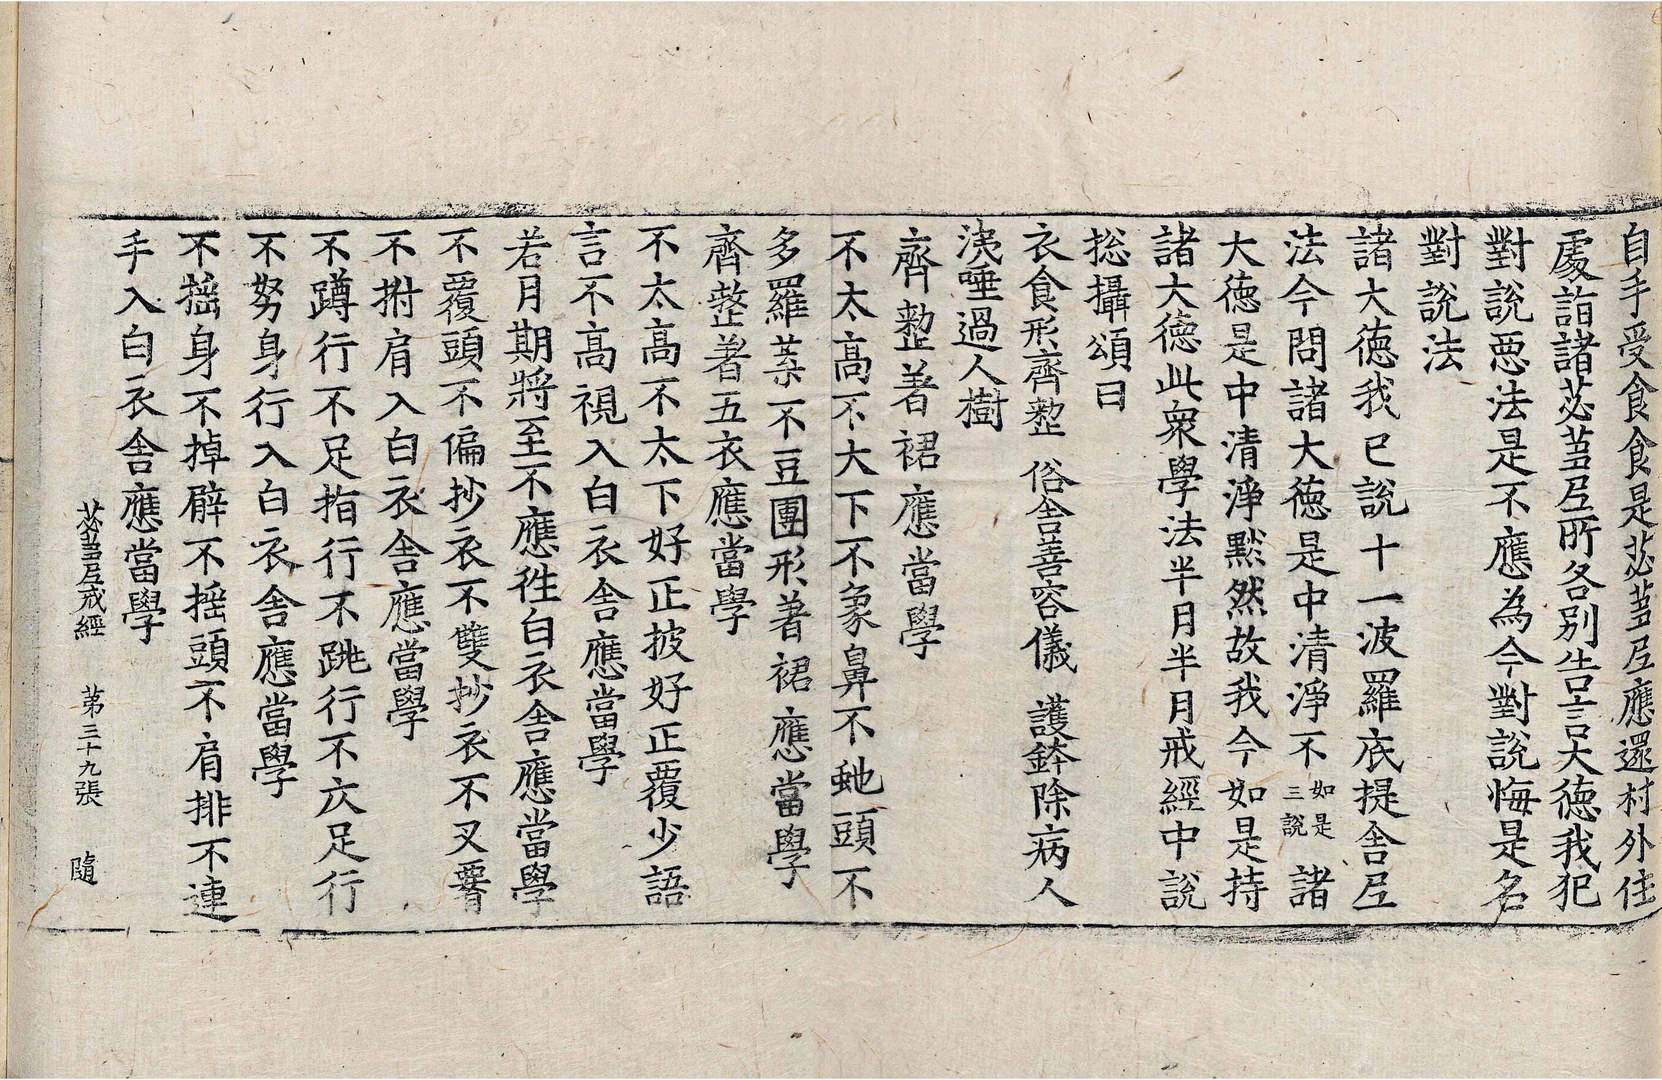 自手受食食是苾芻尼應還村外住
處詣諸苾芻尼所各別告言大德我犯
對說惡法是不應為今對說悔是名
對說法
諸大德我已說十一波羅底提舍尼
法今問諸大德是中清淨不如是三說諸
大德是中清淨默然故我今如是持
諸大德此衆學法半月半月戒經中說
揔攝頌曰
衣食形齊整 俗舍善容儀 護鉢除病人
洟唾過人樹
齊整著裙應當學
不太高不太下不象鼻不虵頭不
多羅葉不豆團形著裙應當學
齊整著五衣應當學
不太高不太下好正披好正覆少語
言不高視入白衣舍應當學
若月期將至不應往白衣舍應當學
不覆頭不偏抄衣不雙抄衣不叉腰
不拊肩入白衣舍應當學
不蹲行不足指行不跳行不仄足行
不努身行入白衣舍應當學
不搖身不掉臂不搖頭不肩排不連
手入白衣舍應當學
苾芻尼戒經 第三十九張 隨